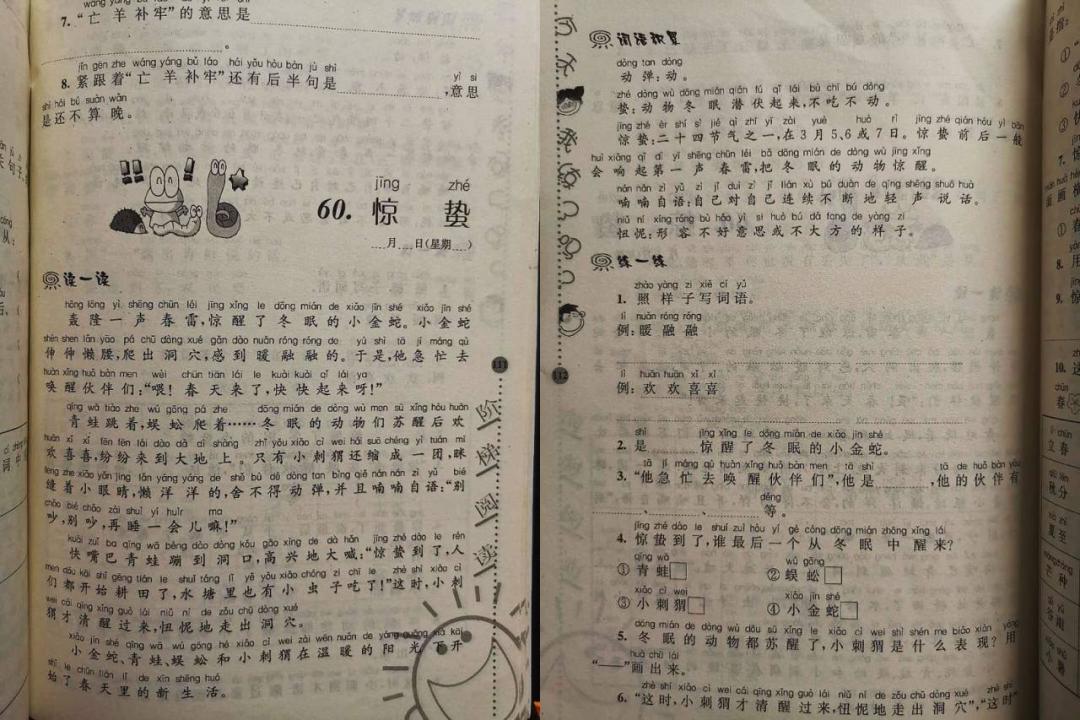 7. “亡羊补牢”的意思是
。
jǐn gēn zhe wáng yáng bǔ láo hái yǒu hòu bàn jù shì
8. 紧跟着“亡羊补牢”还有后半句是 ,意思
yì si
shì hái bú suàn wǎn
是还不算晚。
jīng zhé
60. 惊 蛰
月 日(星期 )
读一读
hōng lōng yì shēng chūn léi jīng xǐng le dōng mián de xiǎo jīn shé xiǎo jīn shé
轰隆一声春雷,惊醒了冬眠的小金蛇。小金蛇
shēn shen lǎn yāo pá chū dòng xué gǎn dào nuǎn róng róng de yú shì tā jí máng qù
伸伸懒腰,爬出洞穴,感到暖融融的。于是,他急忙去
huàn xǐng huǒ bàn men wèi chūn tiān lái le kuài kuài qǐ lái ya
唤醒伙伴们:“喂!春天来了,快快起来呀!”
qīng wā tiào zhe wú gōng pá zhe dōng mián de dòng wù men sū xǐng hòu huān
青蛙跳着,蜈蚣爬着……冬眠的动物们苏醒后欢
huān xǐ xǐ fēn fēn lái dào dà dì shàng zhǐ yǒu xiǎo cì wei hái suō chéng yì tuán mī
欢喜喜,纷纷来到大地上。只有小刺猬还缩成一团,眯
feng zhe xiǎo yǎn jing lǎn yāng yāng de shě bù dé dòng tan bìng qiě nán nán zì yǔ bié
缝着小眼睛,懒洋洋的,舍不得动弹,并且喃喃自语:“别
chǎo bié chǎo zài shuì yí huìr ma
吵,别吵,再睡一会儿嘛!”
kuài zuǐ ba qīng wā bèng dào dòng kǒu gāo xìng de dà hǎn jīng zhé dào le rén
快嘴巴青蛙蹦到洞口,高兴地大喊:“惊蛰到了,人
men dōu kāi shǐ gēng tián le shuǐ táng lǐ yě yǒu xiǎo chóng zi chī le zhè shí xiǎo cì
们都开始耕田了,水塘里也有小虫子吃了!”这时,小刺
wei cái qīng xǐng guò lái niǔ ní de zǒu chū dòng xué
猬才清醒过来,忸怩地走出洞穴。
xiǎo jīn shé qīng wā wú gōng hé xiǎo cì wei zài wēn nuǎn de yáng guāng xià kāi
小金蛇、青蛙、蜈蚣和小刺猬在温暖的阳光下开
shǐ le chūn tiān lǐ de xīn shēng huó
始了春天里的新生活。
111
阶
梯
阅
读
词语积累
dòng tan dòng
动弹:动。
zhé dòng wù dōng mián qián fú qǐ lái bù chī bú dòng
蛰:动物冬眠潜伏起来,不吃不动。
jīng zhé èr shí sì jié qì zhī yī zài yuè huò rì jīng zhé qián hòu yì bān
惊蛰:二十四节气之一,在3月5、6或7日。惊蛰前后一般
huì xiǎng qǐ dì yī shēng chūn léi bǎ dōng mián de dòng wù jīng xǐng
会响起第一声春雷,把冬眠的动物惊醒。
nán nán zì yǔ zì jǐ duì zì jǐ lián xù bú duàn de qīng shēng shuō huà
喃喃自语:自己对自己连续不断地轻声说话。
niǔ ní xíng róng bù hǎo yì si huò bú dà fang de yàng zi
忸怩:形容不好意思或不大方的样子。
练一练
zhào yàng zi xiě cí yǔ
1. 照样子写词语。
lì nuǎn róng róng
例:暖融融
lì huān huān xǐ xǐ
例:欢欢喜喜
shì jīng xǐng le dōng mián de xiǎo jīn shé
2. 是 惊醒了冬眠的小金蛇。
tā jí máng qù huàn xǐng huǒ bàn men tā shì tā de huǒ bàn yǒu
3. “他急忙去唤醒伙伴们”,他是 ,他的伙伴有
děng
、 、 等。
jīng zhé dào le shuí zuì hòu yí gè cóng dōng mián zhōng xǐng lái
4. 惊蛰到了,谁最后一个从冬眠中醒来?
qīng wā wú gōng
①青蛙□ ②蜈蚣□
xiǎo cì wei xiǎo jīn shé
③小刺猬□ ④小金蛇□
dōng mián de dòng wù dōu sū xǐng le xiǎo cì wei shì shén me biǎo xiàn yòng
5. 冬眠的动物都苏醒了,小刺猬是什么表现?用
huà chū lái
“——”画出来。
zhè shí xiǎo cì wei cái qīng xǐng guò lái niǔ ní de zǒu chū dòng xué zhè shí
6. “这时,小刺猬才清醒过来,忸怩地走出洞穴”,“这时”
112
①
②
③
7.
①
8. 用
9.
10. 这
春
立春
秋分
夏至
芒种
谷雨
小暑